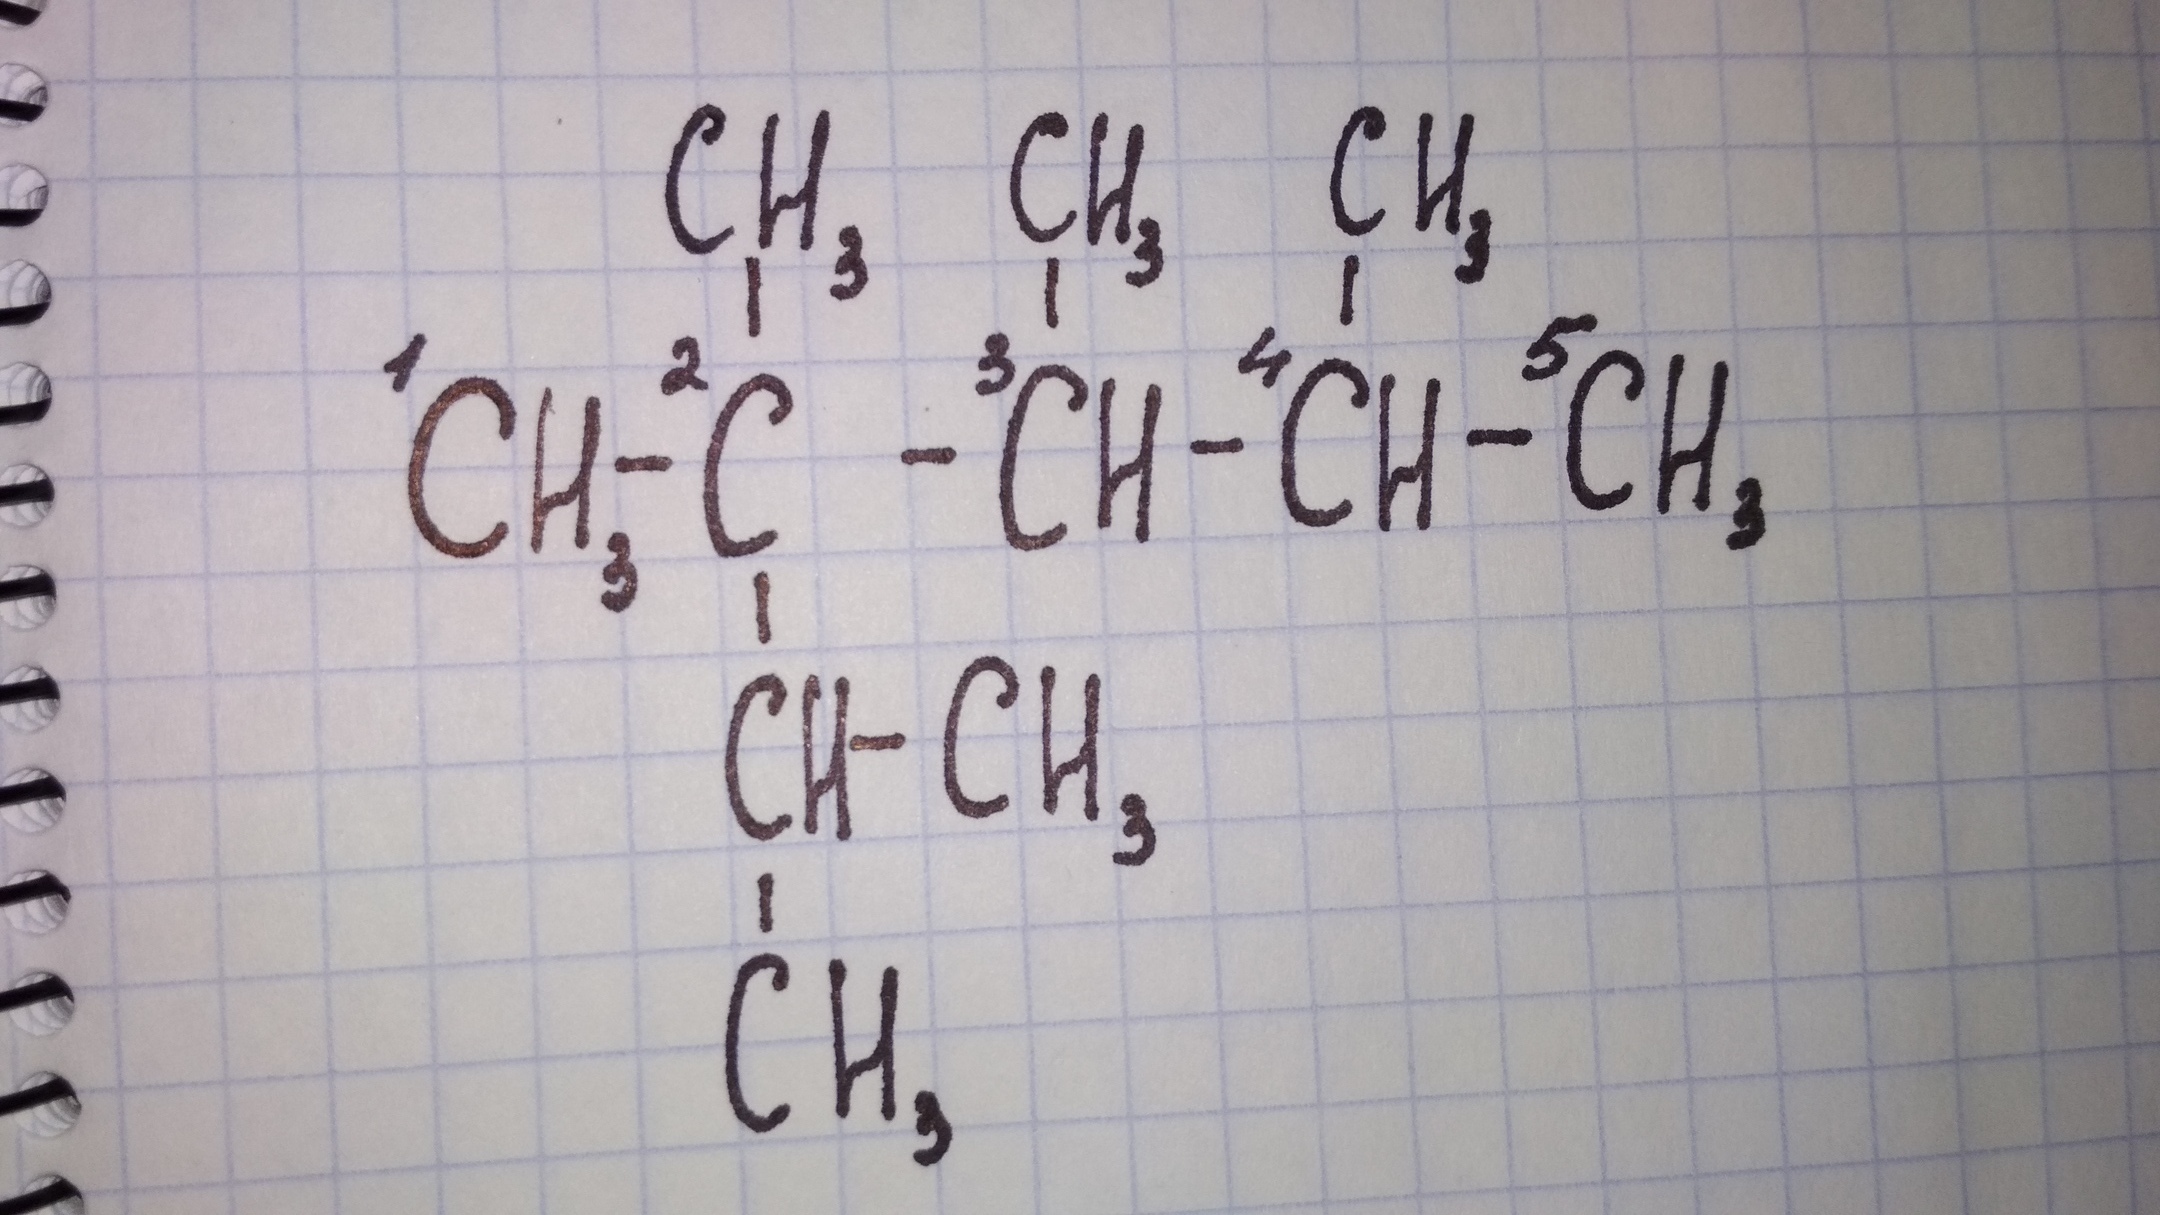 CH₃ CH₃ CH₃
¹CH₃-²C-³CH-⁴CH-⁵CH₃
CH-CH₃
CH₃